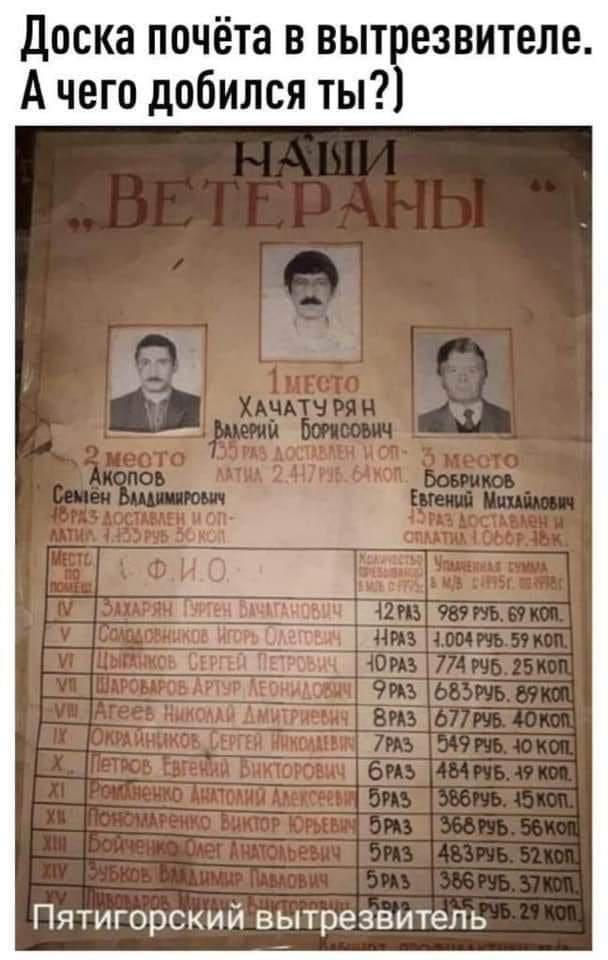 Доска почёта в вытрезвителе.
А чего добился ты?)
НАШИ
„ВЕТЕРАНЫ“
1 место
ХАЧАТУРЯН
Валерий Борисович
135 раз доставлен и оп-
латил 2.417 руб. 64 коп.
2 место
Акопов
Семён Владимирович
18 раз доставлен и оп-
латил 1.133 руб 56 коп
3 место
Бобриков
Евгений Михайлович
13 раз доставлен и
оплатил 1.066 р. 18 к.
Место по помещ. Ф.И.О. Количество Уплаченная сумма
в м/в с 1995г. по 1998г.
IV Захарян Гурген Вачаганович 12 раз 989 руб. 69 коп.
V Солодовников Игорь Олегович 11 раз 1.004 руб. 59 коп.
VI Цыганков Сергей Петрович 10 раз 774 руб. 25 коп.
VII Шароваров Артур Леонидович 9 раз 683 руб. 89 коп.
VIII Агеев Николай Дмитриевич 8 раз 677 руб. 40 коп.
IX Окрайников Сергей Николаевич 7 раз 549 руб. 10 коп.
X Петров Евгений Викторович 6 раз 484 руб. 19 коп.
XI Романенко Анатолий Алексеевич 5 раз 386 руб. 15 коп.
XII Пономаренко Виктор Юрьевич 5 раз 368 руб. 56 коп
XIII Бойченко Олег Анатольевич 5 раз 483 руб. 52 коп.
XIV Зубков Владимир Павлович 5 раз 386 руб. 37 коп.
XV Пивоваров Михаил Викторович 5 раз руб. 29 коп
Пятигорский вытрезвитель